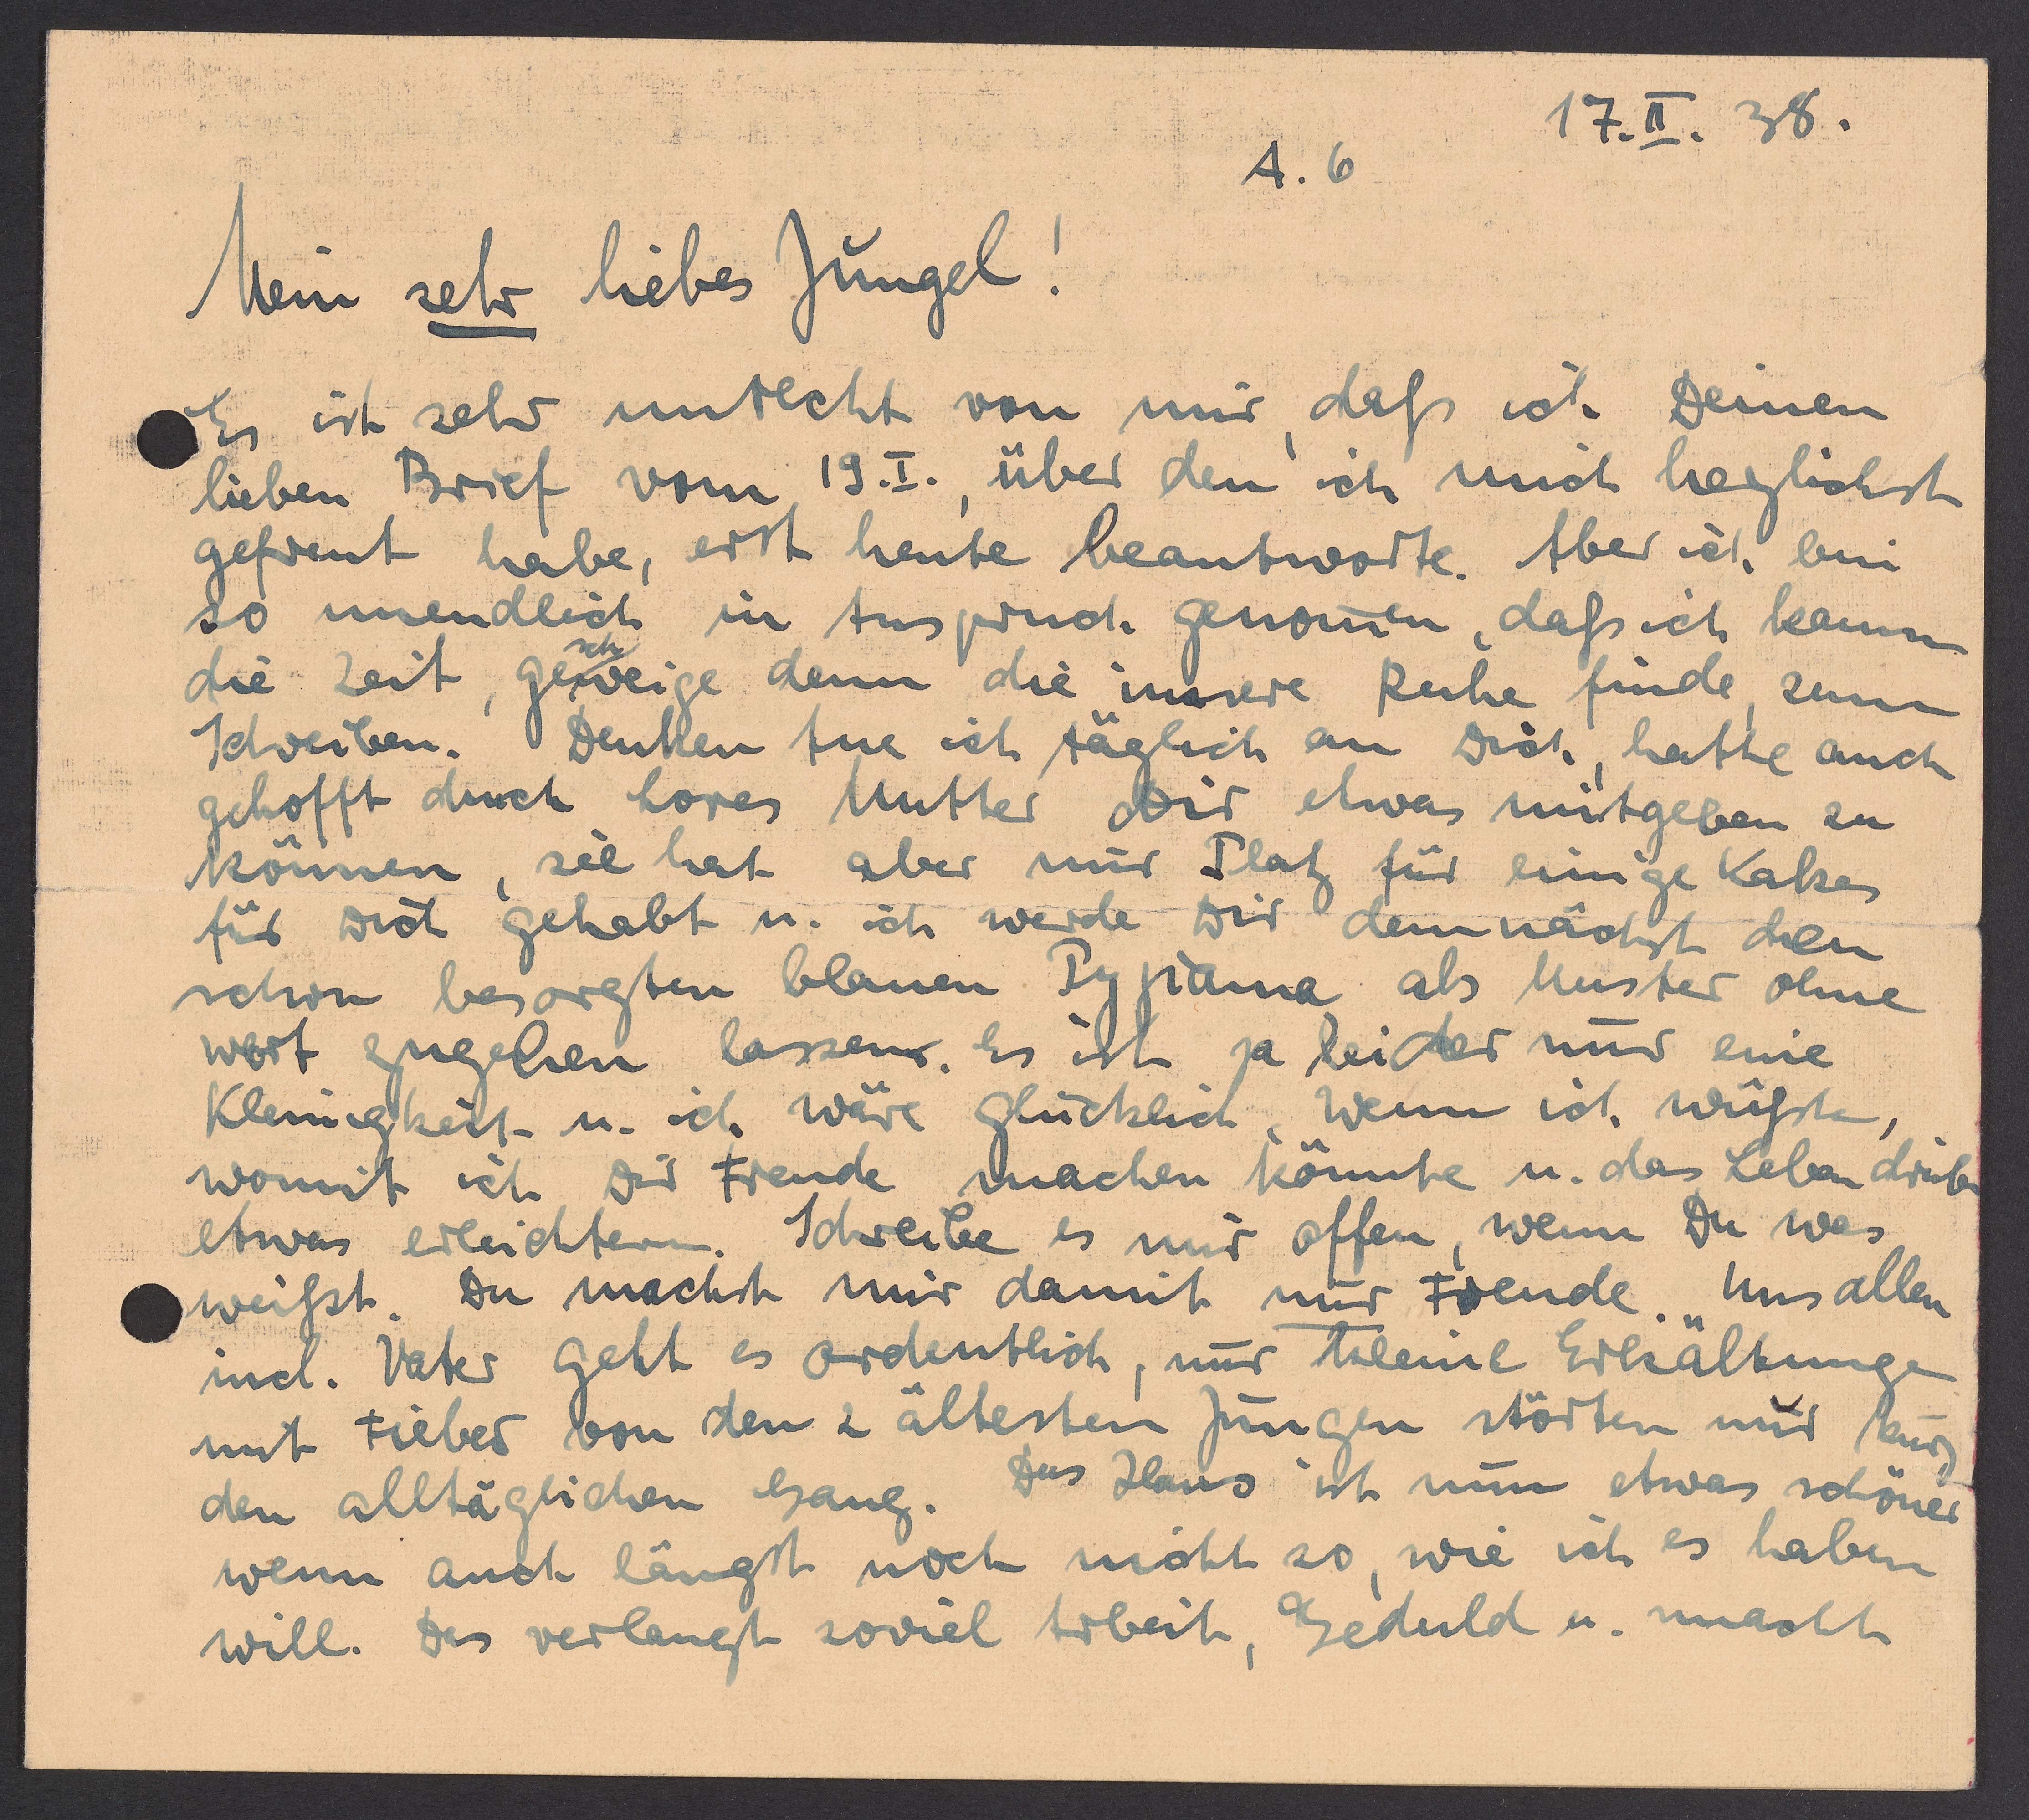 17.II. 38.
A. 6
Mein sehr liebes Jungel!
Es ist sehr unrecht von mir, dass ich Deinen
lieben Brief vom 19.I., über den ich mich herzlichst
gefreut habe, erst heute beantworte. Aber ich bin
so unendlich in Anspruch genom̅en, dass ich kaum
die Zeit, geschweige denn die innere Ruhe finde, zum
Schreiben. Denken tue ich täglich an Dich, hatte auch
gehofft durch Lores Mutter Dir etwas mitgeben zu
können, sie hat aber nur Platz für einige Kakes
für Dich gehabt u. ich werde Dir demnächst den
schon besorgten blauen Pyjiama als Muster ohne
Wert zugehen lassen. Es ist ja leider nur eine
Kleinigkeit u. ich wäre glücklich, wenn ich wüsste,
womit ich Dir Freude machen könnte u. das Leben drüben
etwas erleichtern. Schreibe es mir offen, wenn Du was
weisst. Du machst mir damit nur Freude. Uns allen
incl. Vater geht es ordentlich, nur kleine Erkältungen
mit Fieber von den 2 ältesten Jungen störten nur kurz
den alltäglichen Gang. Das Haus ist nun etwas schöner
wenn auch längst noch nicht so, wie ich es haben
will. Das verlangt soviel Arbeit, Geduld u. macht